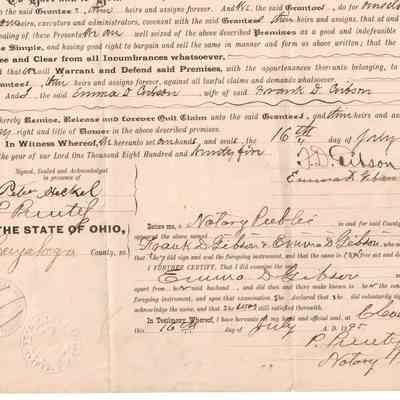 the said Grantees, their heirs and assigns forever. And We, the said Grantors, do for ourselves
heirs, executors and administrators, covenant with the said Grantees their heirs and assigns, that at and
ealing of these Presents we are well seized of the above described Premises as a good and indefeasible
e Simple, and have good right to bargain and sell the same in manner and form as above written; that the
ee and Clear from all Incumbrances whatsoever,
will Warrant and Defend said Premises, with the appurtenances thereunto belonging, to
rantees, their heirs and assigns forever, against all lawful claims and demands whatsoever.
And I the said Emma D Gibson, wife of said Frank D. Gibson
hereby Remise, Release and Forever Quit Claim unto the said Grantees, and their heirs and
right and title of Dower in the above described Premises.
In Witness Whereof, We hereunto set our hands, and seals, the 16th day of July
the year of our Lord One Thousand Eight Hundred and ninety five
Signed, Sealed and Acknowledged
in presence of
F. D. Gibson
Emma D. Gibson
Peter Heckel
P. Prutel
THE STATE OF OHIO,
Cuyahoga County, ss.
Before me, a Notary Public in and for said County
appeared the above named
Frank D Gibson & Emma D Gibson, who
that they did sign and seal the foregoing instrument, and that the same is
I FURTHER CERTIFY, That I did examine the said
Emma D Gibson
apart from her said husband, and did then and there make known to her the
foregoing instrument, and upon that examination She declared that She did voluntarily
acknowledge the same, and that She was still satisfied
In Testimony Whereof, I have hereunto set my hand and official seal, at
16th day of July A. D. 1895
P. Prutel
Notary